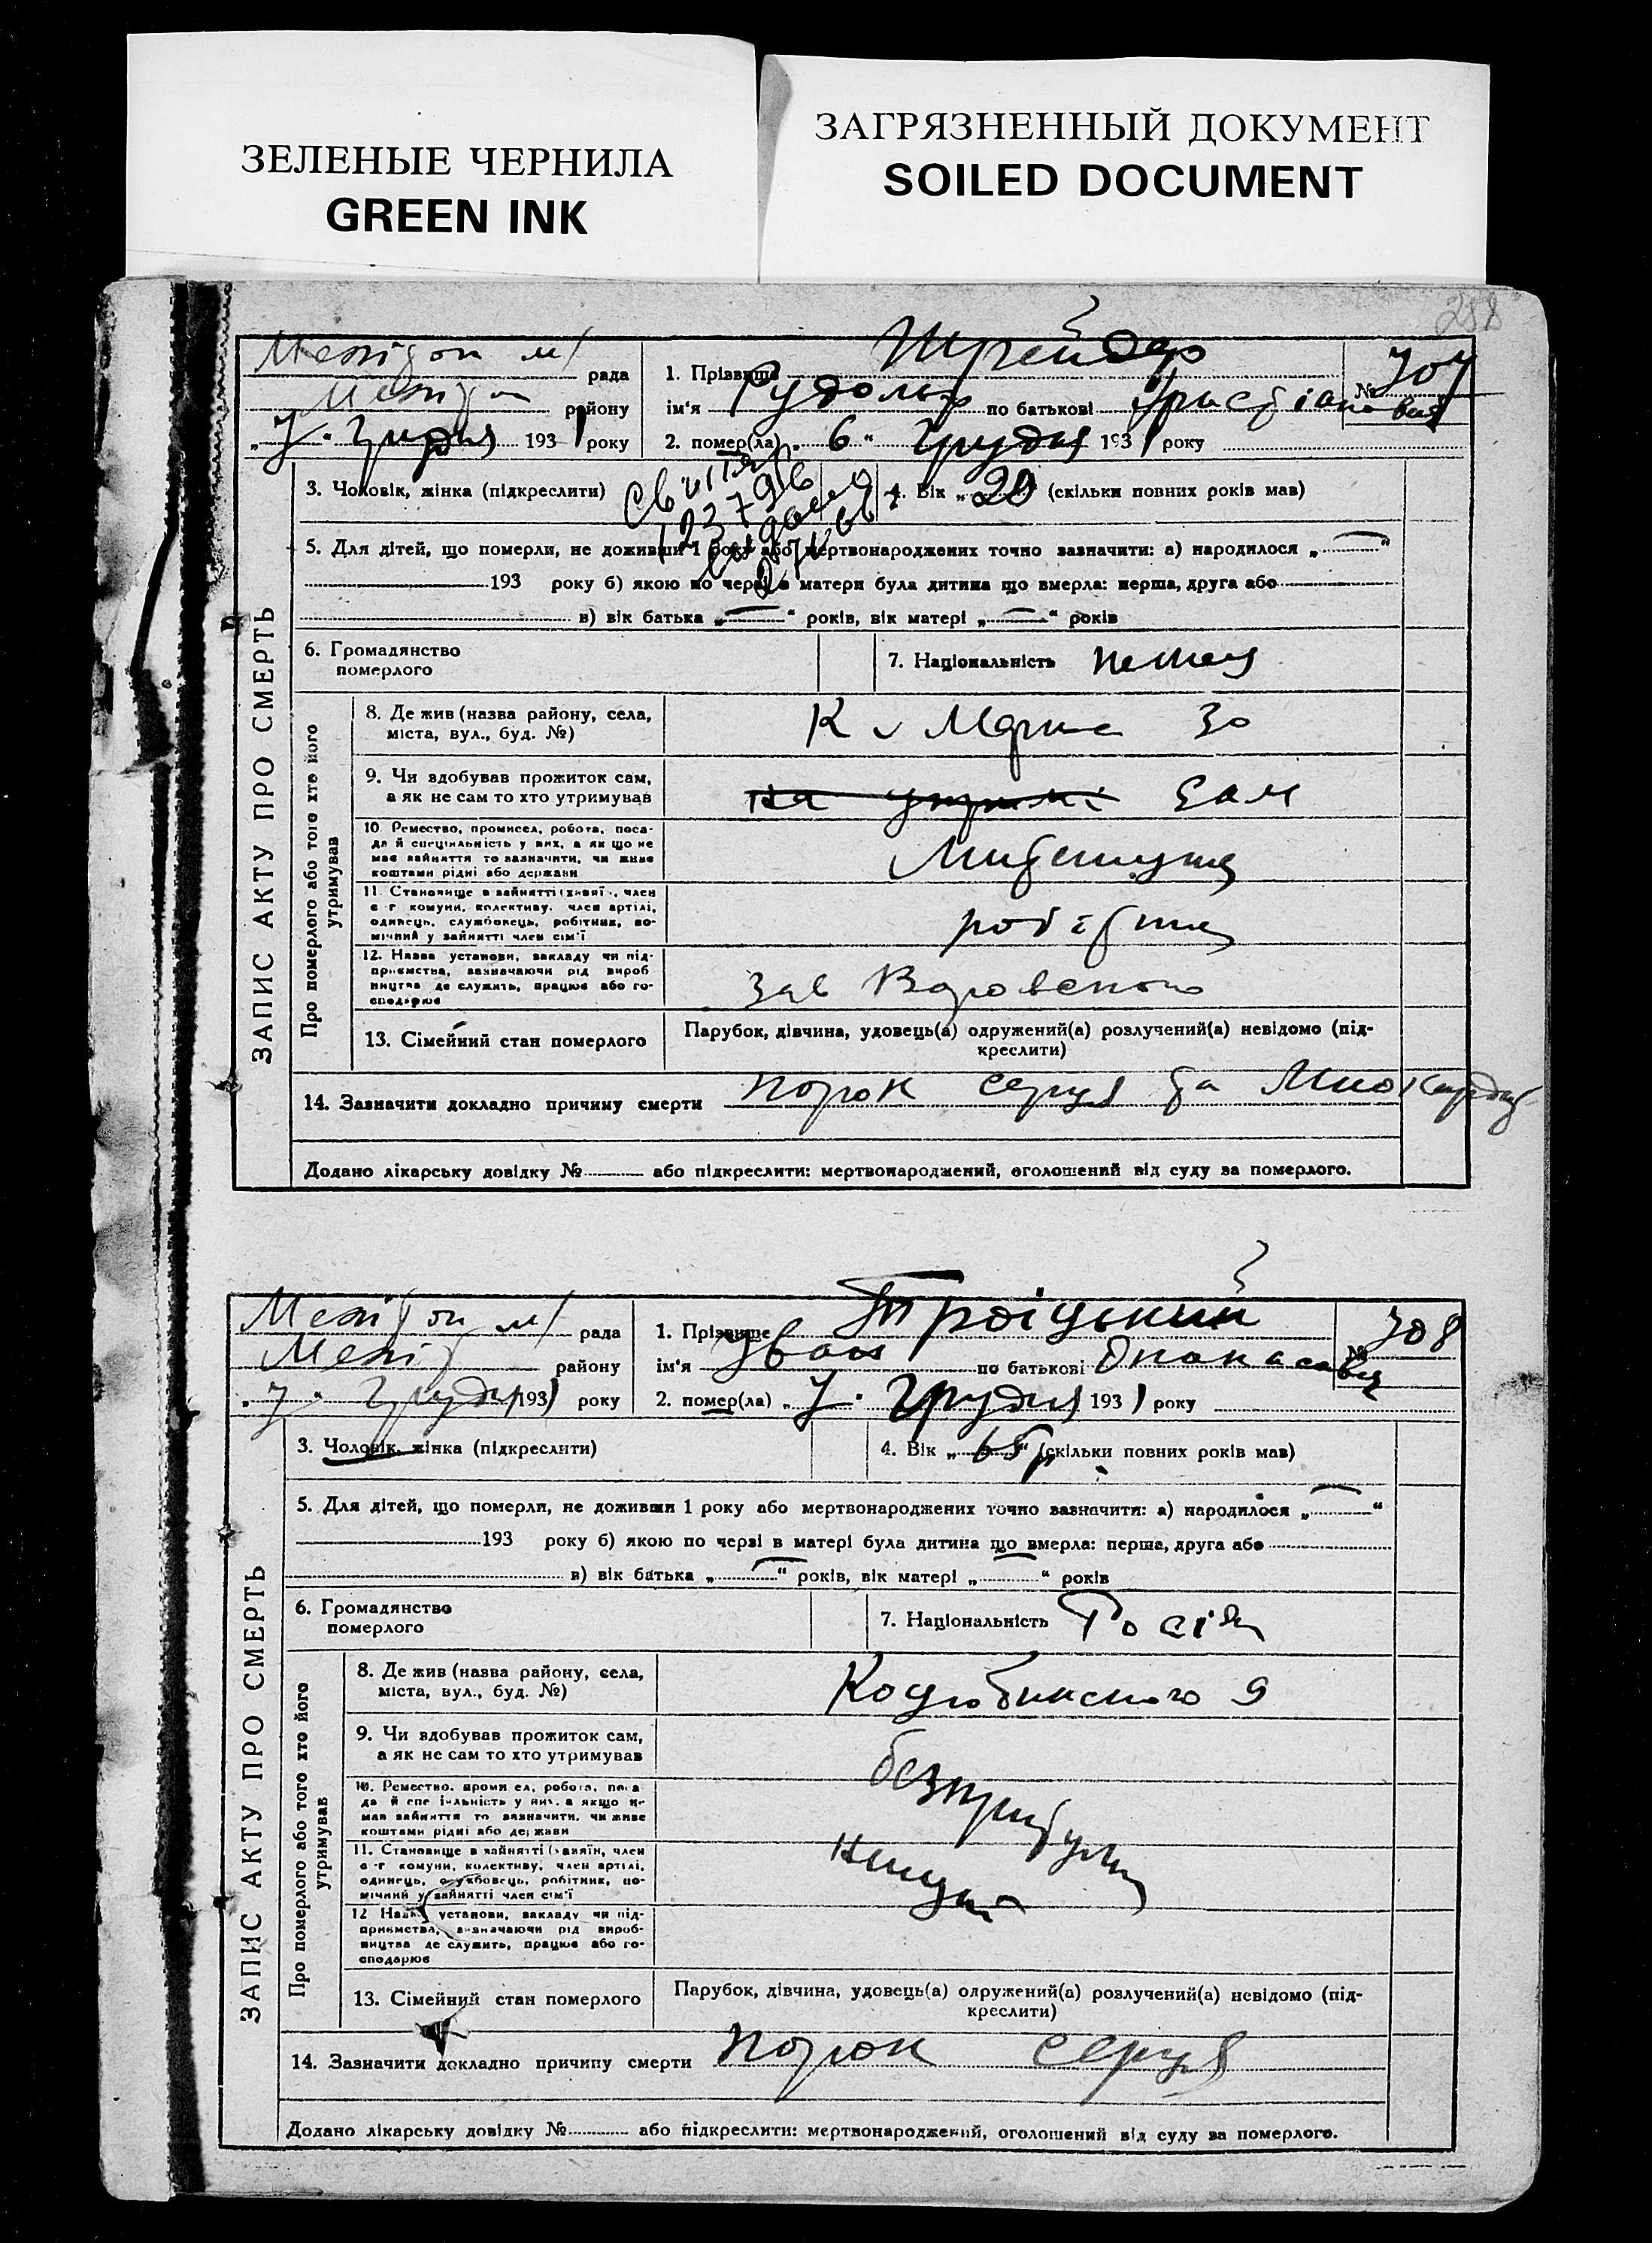 ЗЕЛЕНЫЕ ЧЕРНИЛА
GREEN INK
ЗАГРЯЗНЕННЫЙ ДОКУМЕНТ
SOILED DOCUMENT
258
ЗАПИС АКТУ ПРО СМЕРТЬ
рада
району
„7“ грудня 1931 року
1. Прізвище Шрейдер
№ 707
ім'я Рудольф по батькові Христіанович
2. помер(ла) „6“ грудня 1931 року
3. Чоловік, жінка (підкреслити)
4. Вік „29“ (скільки повних років мав)
5. Для дітей, що померли, не доживши 1 року або мертвонароджених точно зазначити: а) народилося „ “
193 року б) якою по черзі в матери була дитина що вмерла: перша, друга або
в) вік батька „ “ років, вік матері „ “ років
6. Громадянство померлого
7. Національність немець
Про померлого або того хто його утримував
8. Де жив (назва району, села, міста, вул., буд. №)
К Маркса 30
9. Чи здобував прожиток сам, а як не сам то хто утримував
на утримкі сам
10. Ремество, промисел, робота, посада й спеціяльність у них, а як що не має зайняття то зазначити, чи живе коштами рідні або держави
11. Становище в зайнятті (хазяїн, член с-г комуни, колективу, член артілі, одинець, службовець, робітник, помічний у зайнятті член сім'ї
робітник
12. Назва установи, закладу чи підприємства, зазначаючи рід виробництва де служить, працює або господарює
зав Воровского
13. Сімейний стан померлого
Парубок, дівчина, удовець(а) одружений(а) розлучений(а) невідомо (підкреслити)
14. Зазначити докладно причину смерти порок серця та Миокардит
Додано лікарську довідку № або підкреслити: мертвонароджений, оголошений від суду за померлого.
ЗАПИС АКТУ ПРО СМЕРТЬ
рада
району
„7“ грудня 1931 року
1. Прізвище Троіцький
№ 708
ім'я Іван по батькові Опанасович
2. помер(ла) „7“ грудня 1931 року
3. Чоловік, жінка (підкреслити)
4. Вік „65“ (скільки повних років мав)
5. Для дітей, що померли, не доживши 1 року або мертвонароджених точно зазначити: а) народилося „ “
193 року б) якою по черзі в матері була дитина що вмерла: перша, друга або
в) вік батька „ “ років, вік матері „ “ років
6. Громадянство померлого
7. Національність Росіян
Про померлого або того хто його утримував
8. Де жив (назва району, села, міста, вул., буд. №)
Коцюбинського 9
9. Чи здобував прожиток сам, а як не сам то хто утримував
10. Ремество, промисел, робота, посада й спеціяльність у них, а якщо не має зайняття то зазначити, чи живе коштами рідні або держави
11. Становище в зайнятті (хазяїн, член с-г комуни, колективу, член артілі, одинець, службовець, робітник, помічний у зайнятті член сім'ї
12. Назва установи, закладу чи підприємства, зазначаючи рід виробництва де служить, працює або господарює
13. Сімейний стан померлого
Парубок, дівчина, удовець(а) одружений(а) розлучений(а) невідомо (підкреслити)
14. Зазначити докладно причину смерти порок серця
Додано лікарську довідку № або підкреслити: мертвонароджений, оголошений від суду за померлого.